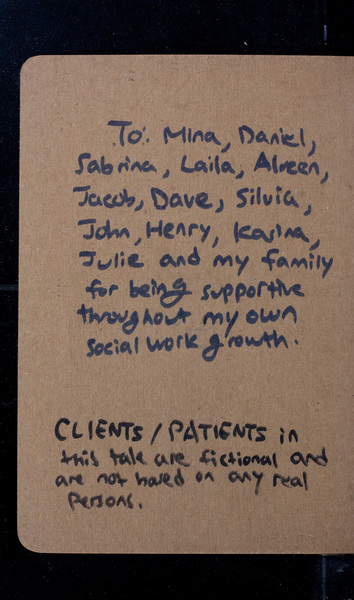 To: Mina, Daniel,
Sabrina, Laila, Alreen,
Jacob, Dave, Silvia,
John, Henry, Karina,
Julie and my family
for being supportive
throughout my own
social work growth.
CLIENTS / PATIENTS in
this tale are fictional and
are not based on any real
persons.